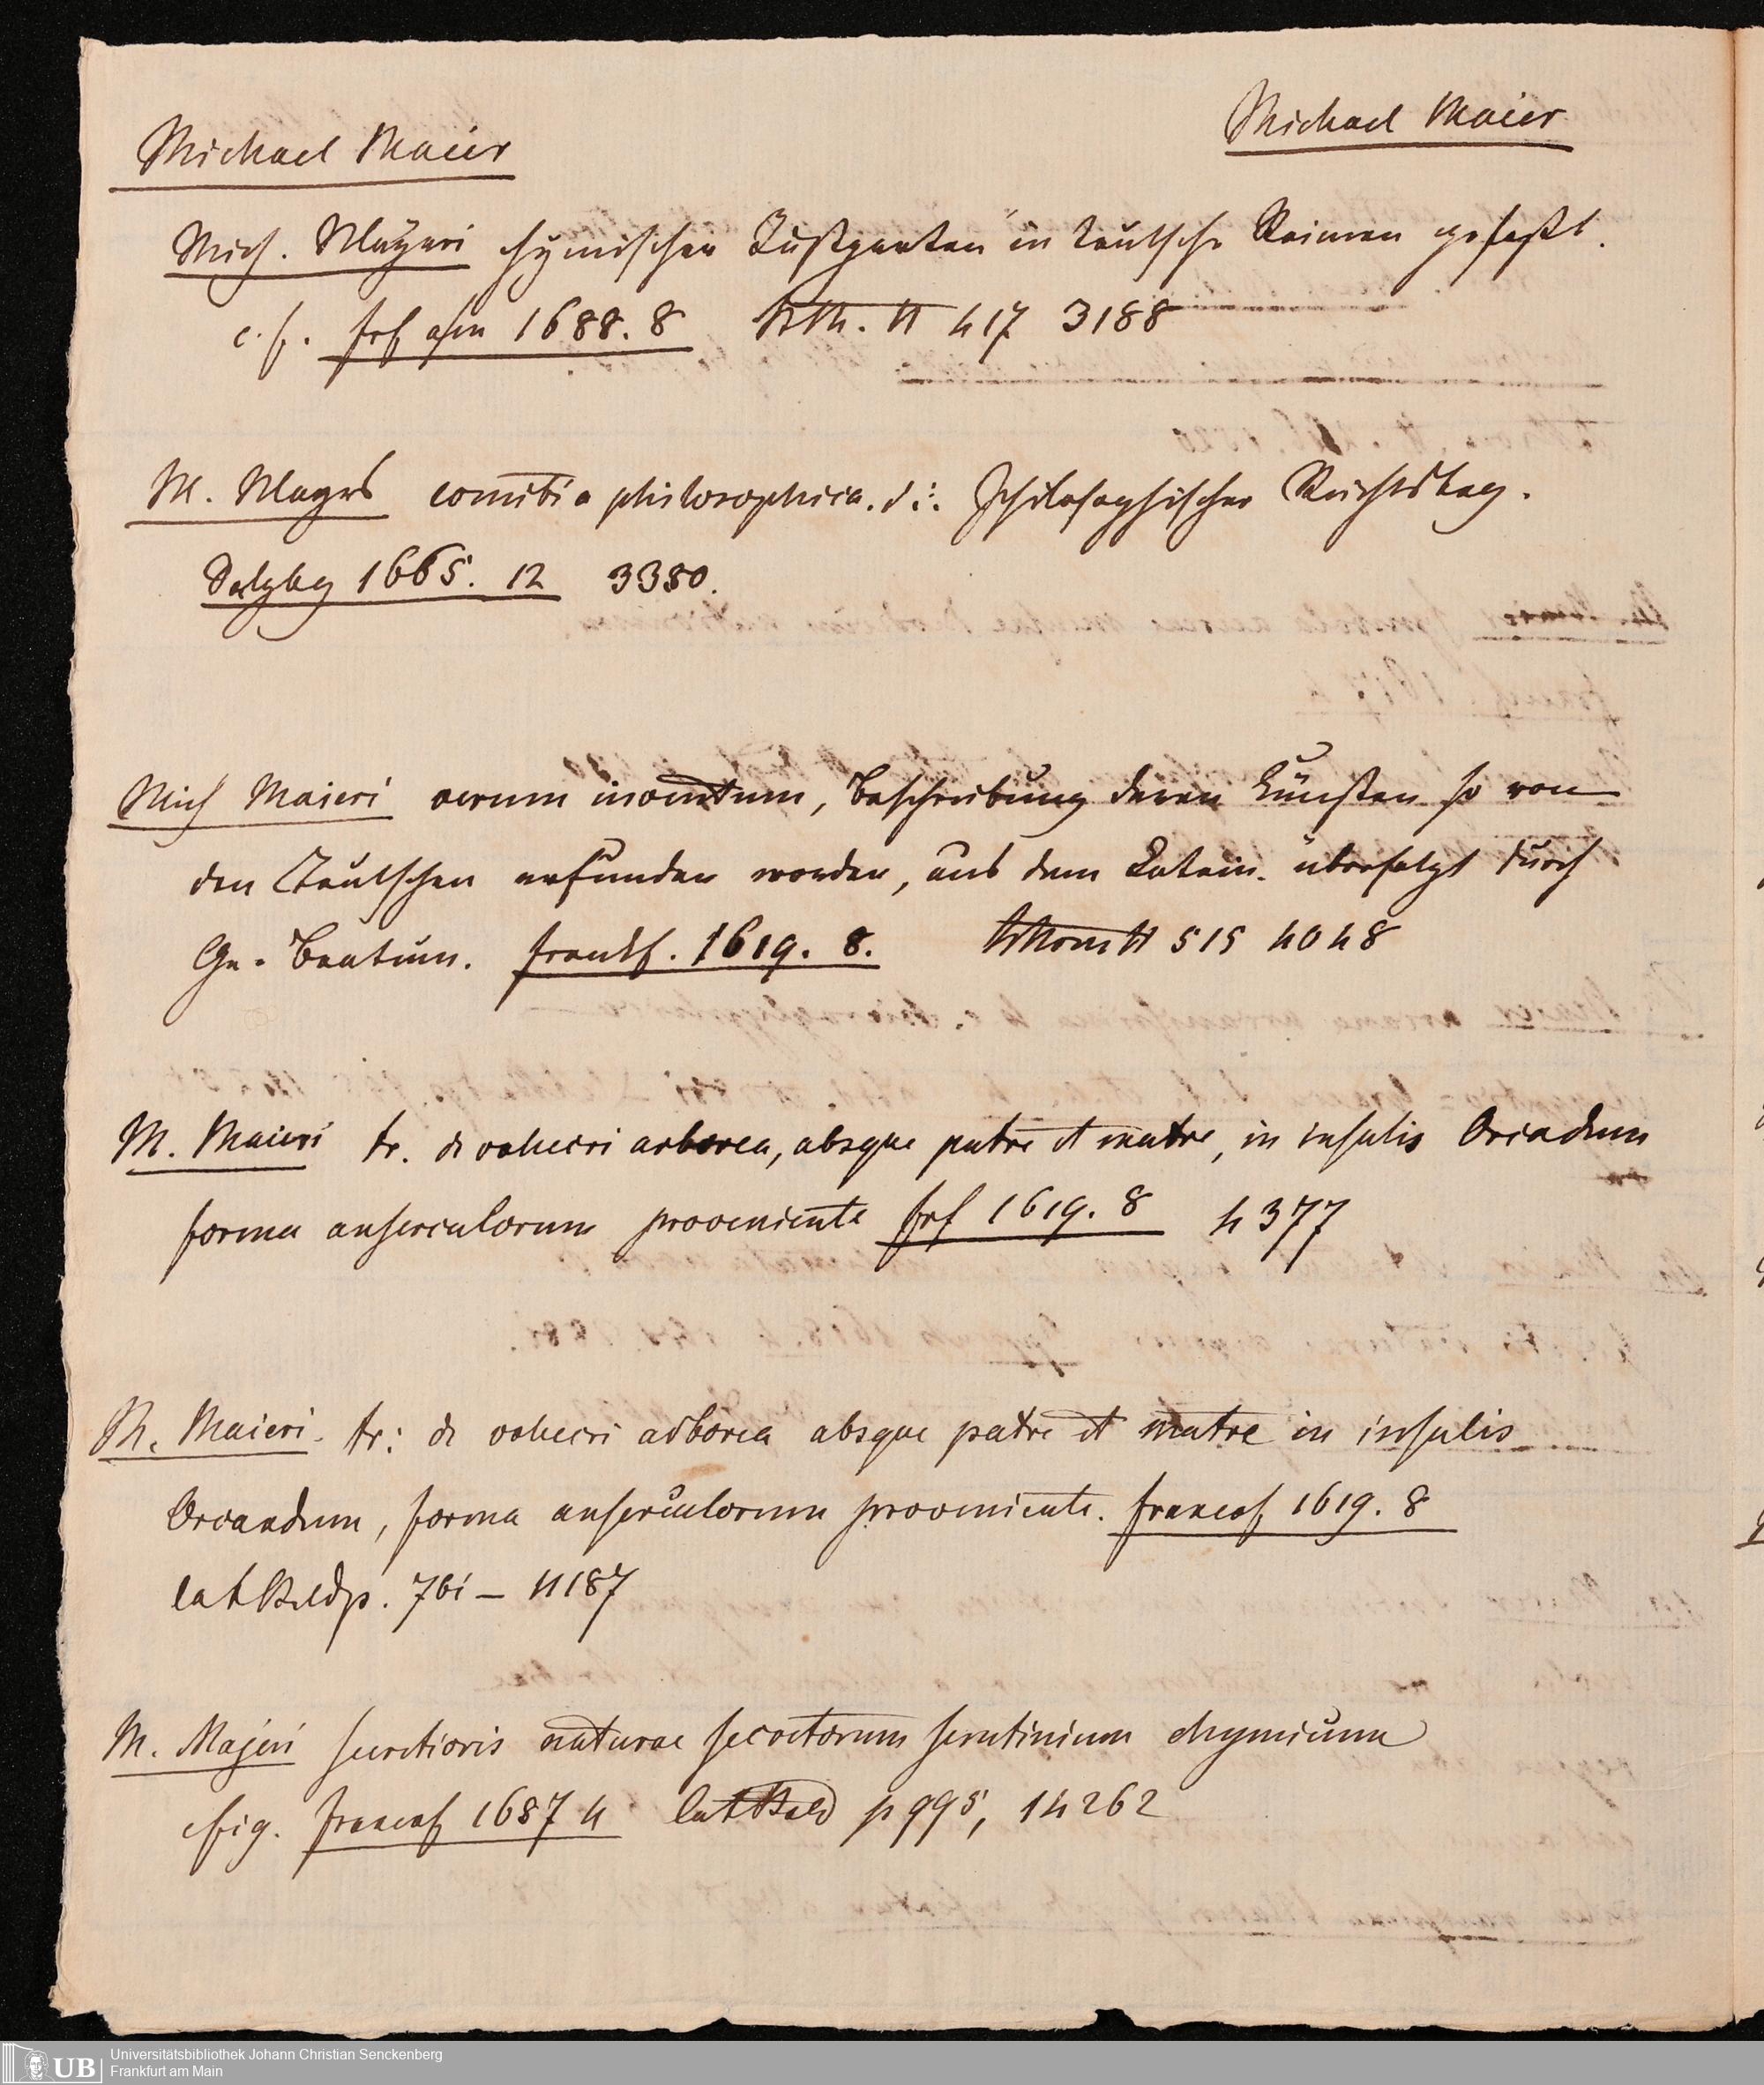 Michael Maier
Michael Maier
Mich. Mayeri chymischer Lustgarten in teutsche Reimen gefaßt.
c. f. frf a/m 1688. 8 II 417 3188
M. Mayers comitia philosophica. d. i. Philosophischer Reichstag.
Salzbg 1665. 12 3380.
Mich Maieri verum inventum, Beschreibung deren Künsten so von
den Teutschen erfunden worden, aus dem Latein. übersetzt durch
Ge. Beatum. Frankf. 1619. 8. II 515 4048
M. Maieri tr. de volucri arborea, absque patre et matre, in insulis Orcadum
forma anserculorum proveniente frf 1619. 8 4377
M. Maieri. tr: de volucri arborea absque patre et matre in insulis
Orcandum, forma anserculorum proveniente. francof 1619. 8
lat p. 761 – 11187
M. Majeri secretioris naturae secretorum scrutinium chymicum
c fig. francof 1687 4 lat p 995, 14262
Universitätsbibliothek Johann Christian Senckenberg
UB
Frankfurt am Main